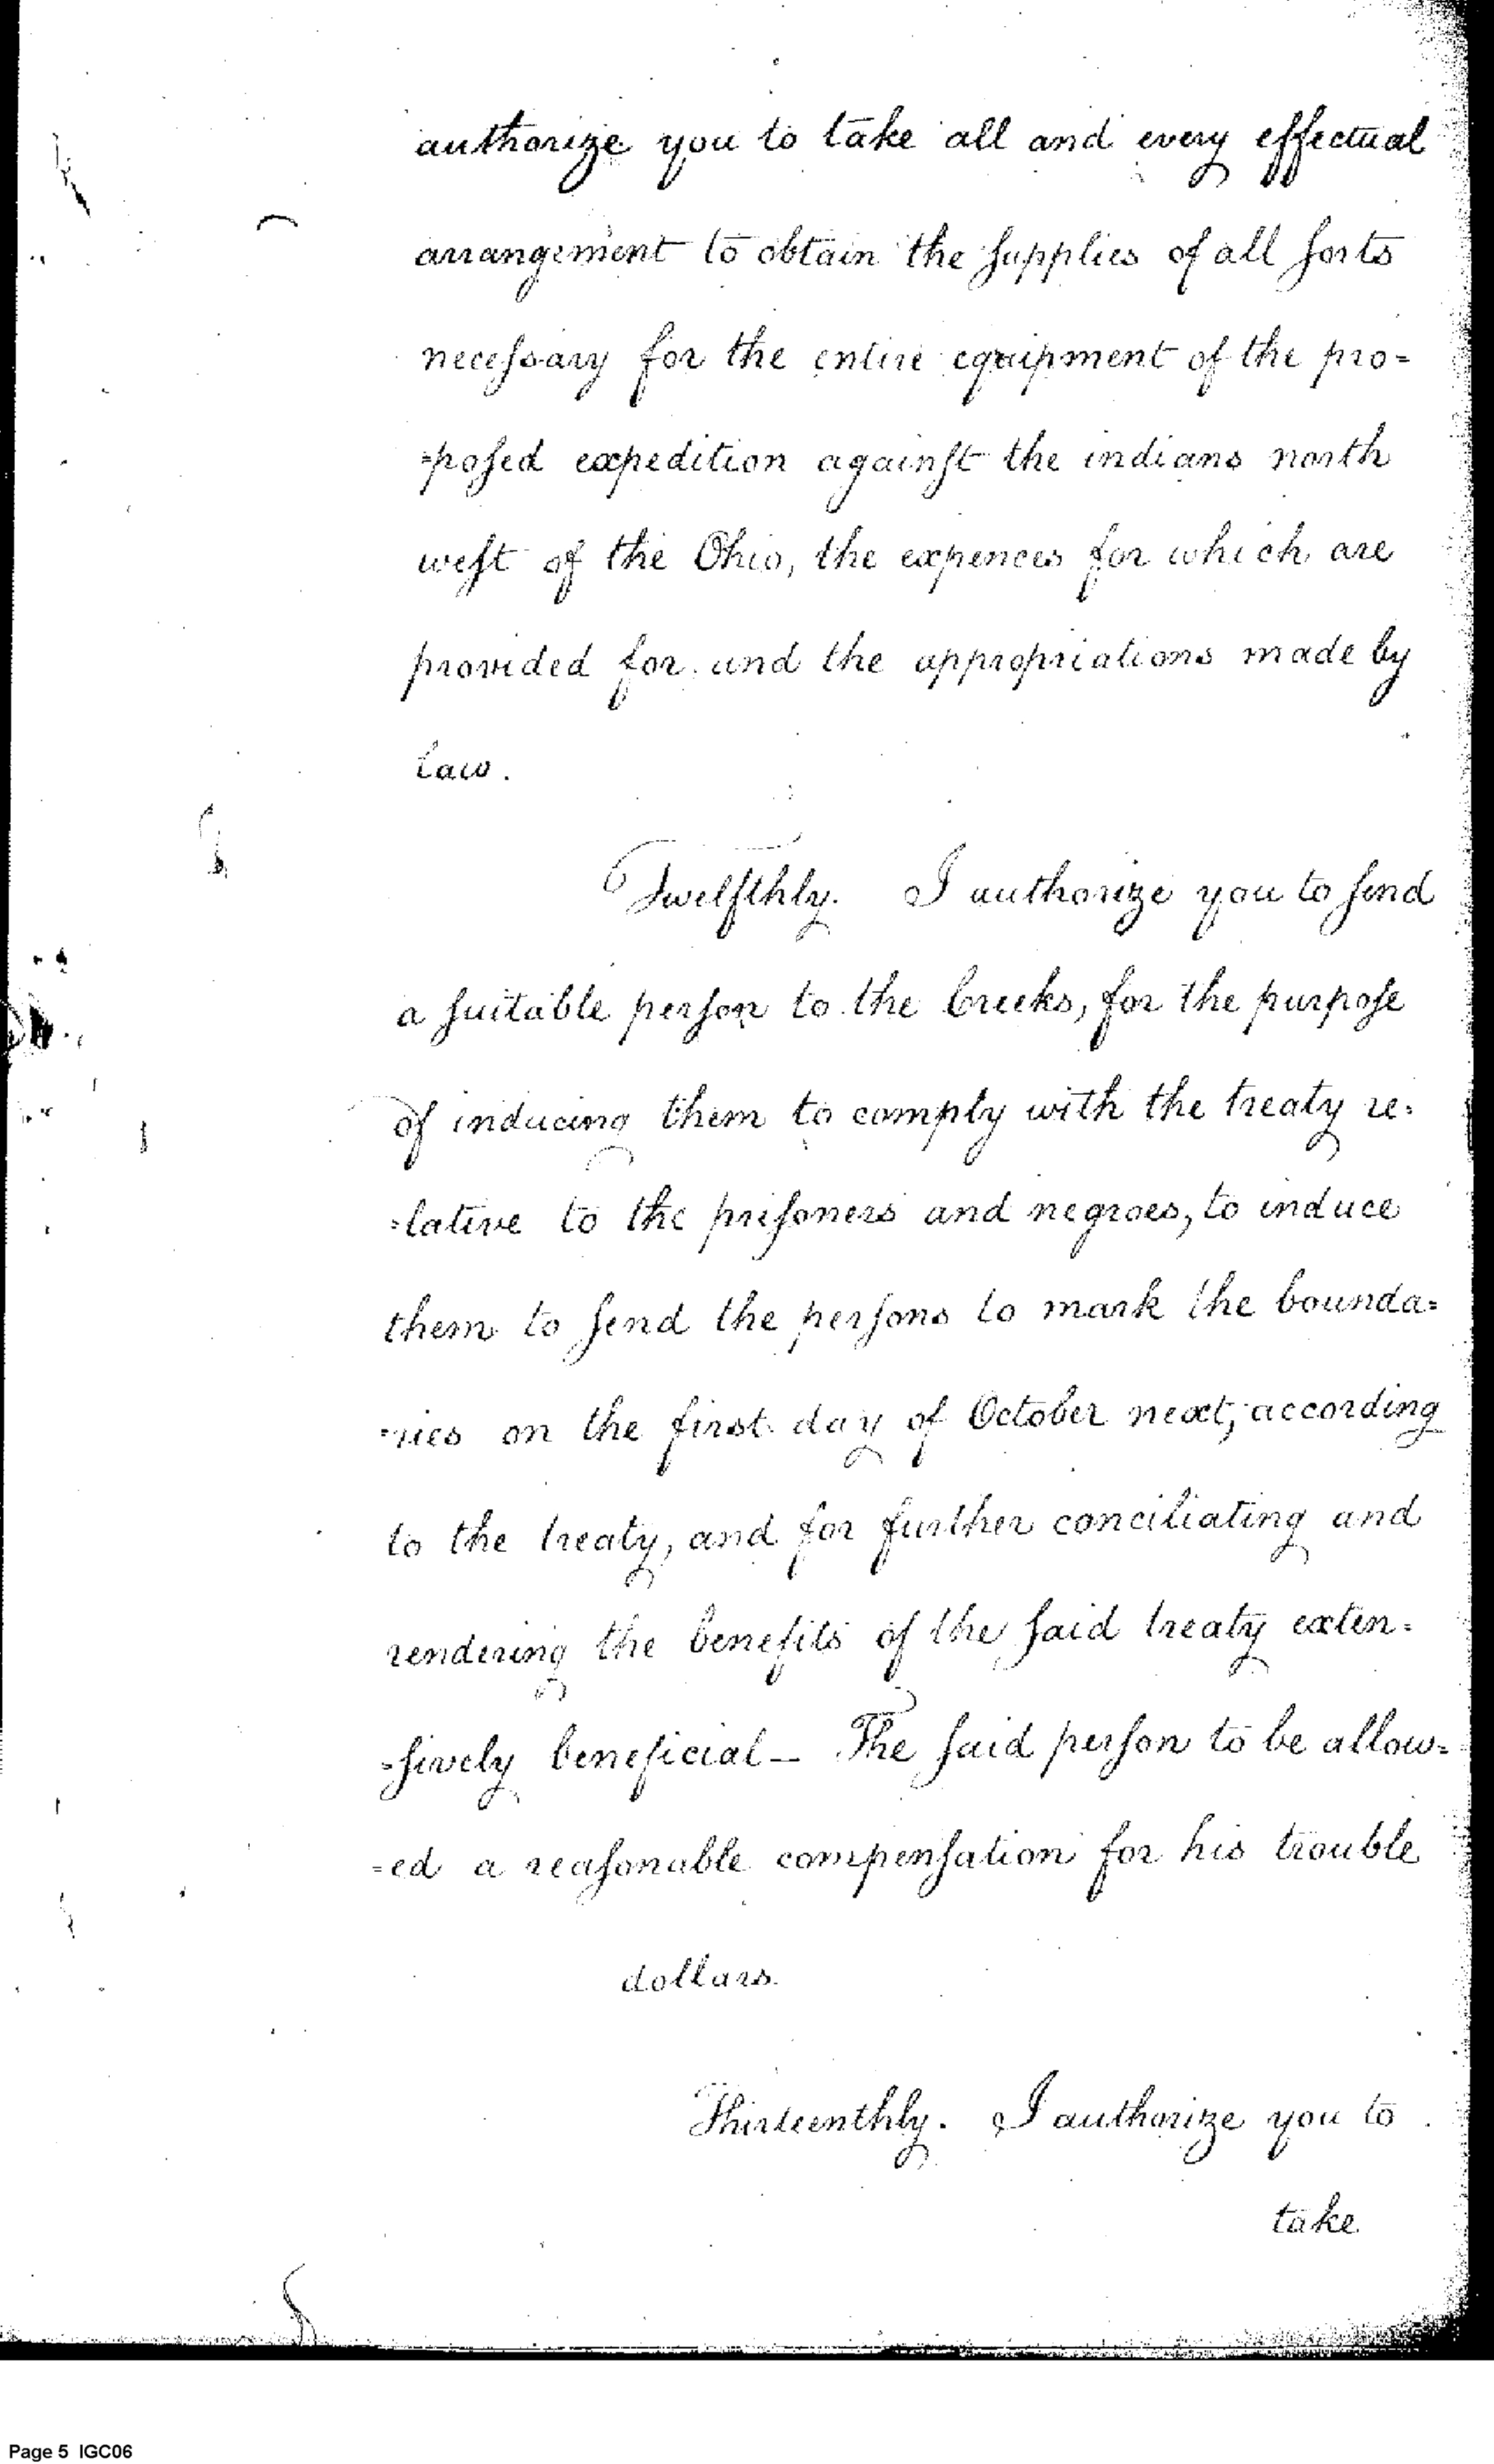 authorize you to take all and every effectual
arrangement to obtain the supplies of all sorts
necessary for the entire equipment of the pro=
=posed expedition against the indians north
west of the Ohio, the expences for which are
provided for and the appropriations made by
law.
Twelfthly. I authorize you to send
a suitable person to the Creeks, for the purpose
of inducing them to comply with the treaty re=
=lative to the prisoners and negroes, to induce
them to send the persons to mark the bounda=
=ries on the first day of October next, according
to the treaty, and for further conciliating and
rendering the benefits of the said treaty exten=
=sively beneficial — The said person to be allow=
=ed a reasonable compensation for his trouble
dollars.
Thirteenthly. I authorize you to
take
Page 5 IGC06